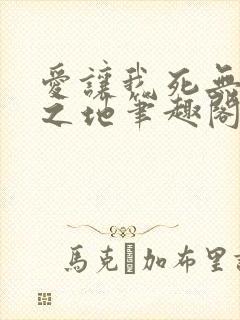 愛讓我死無
之地筆趣閣
馬克·加布里